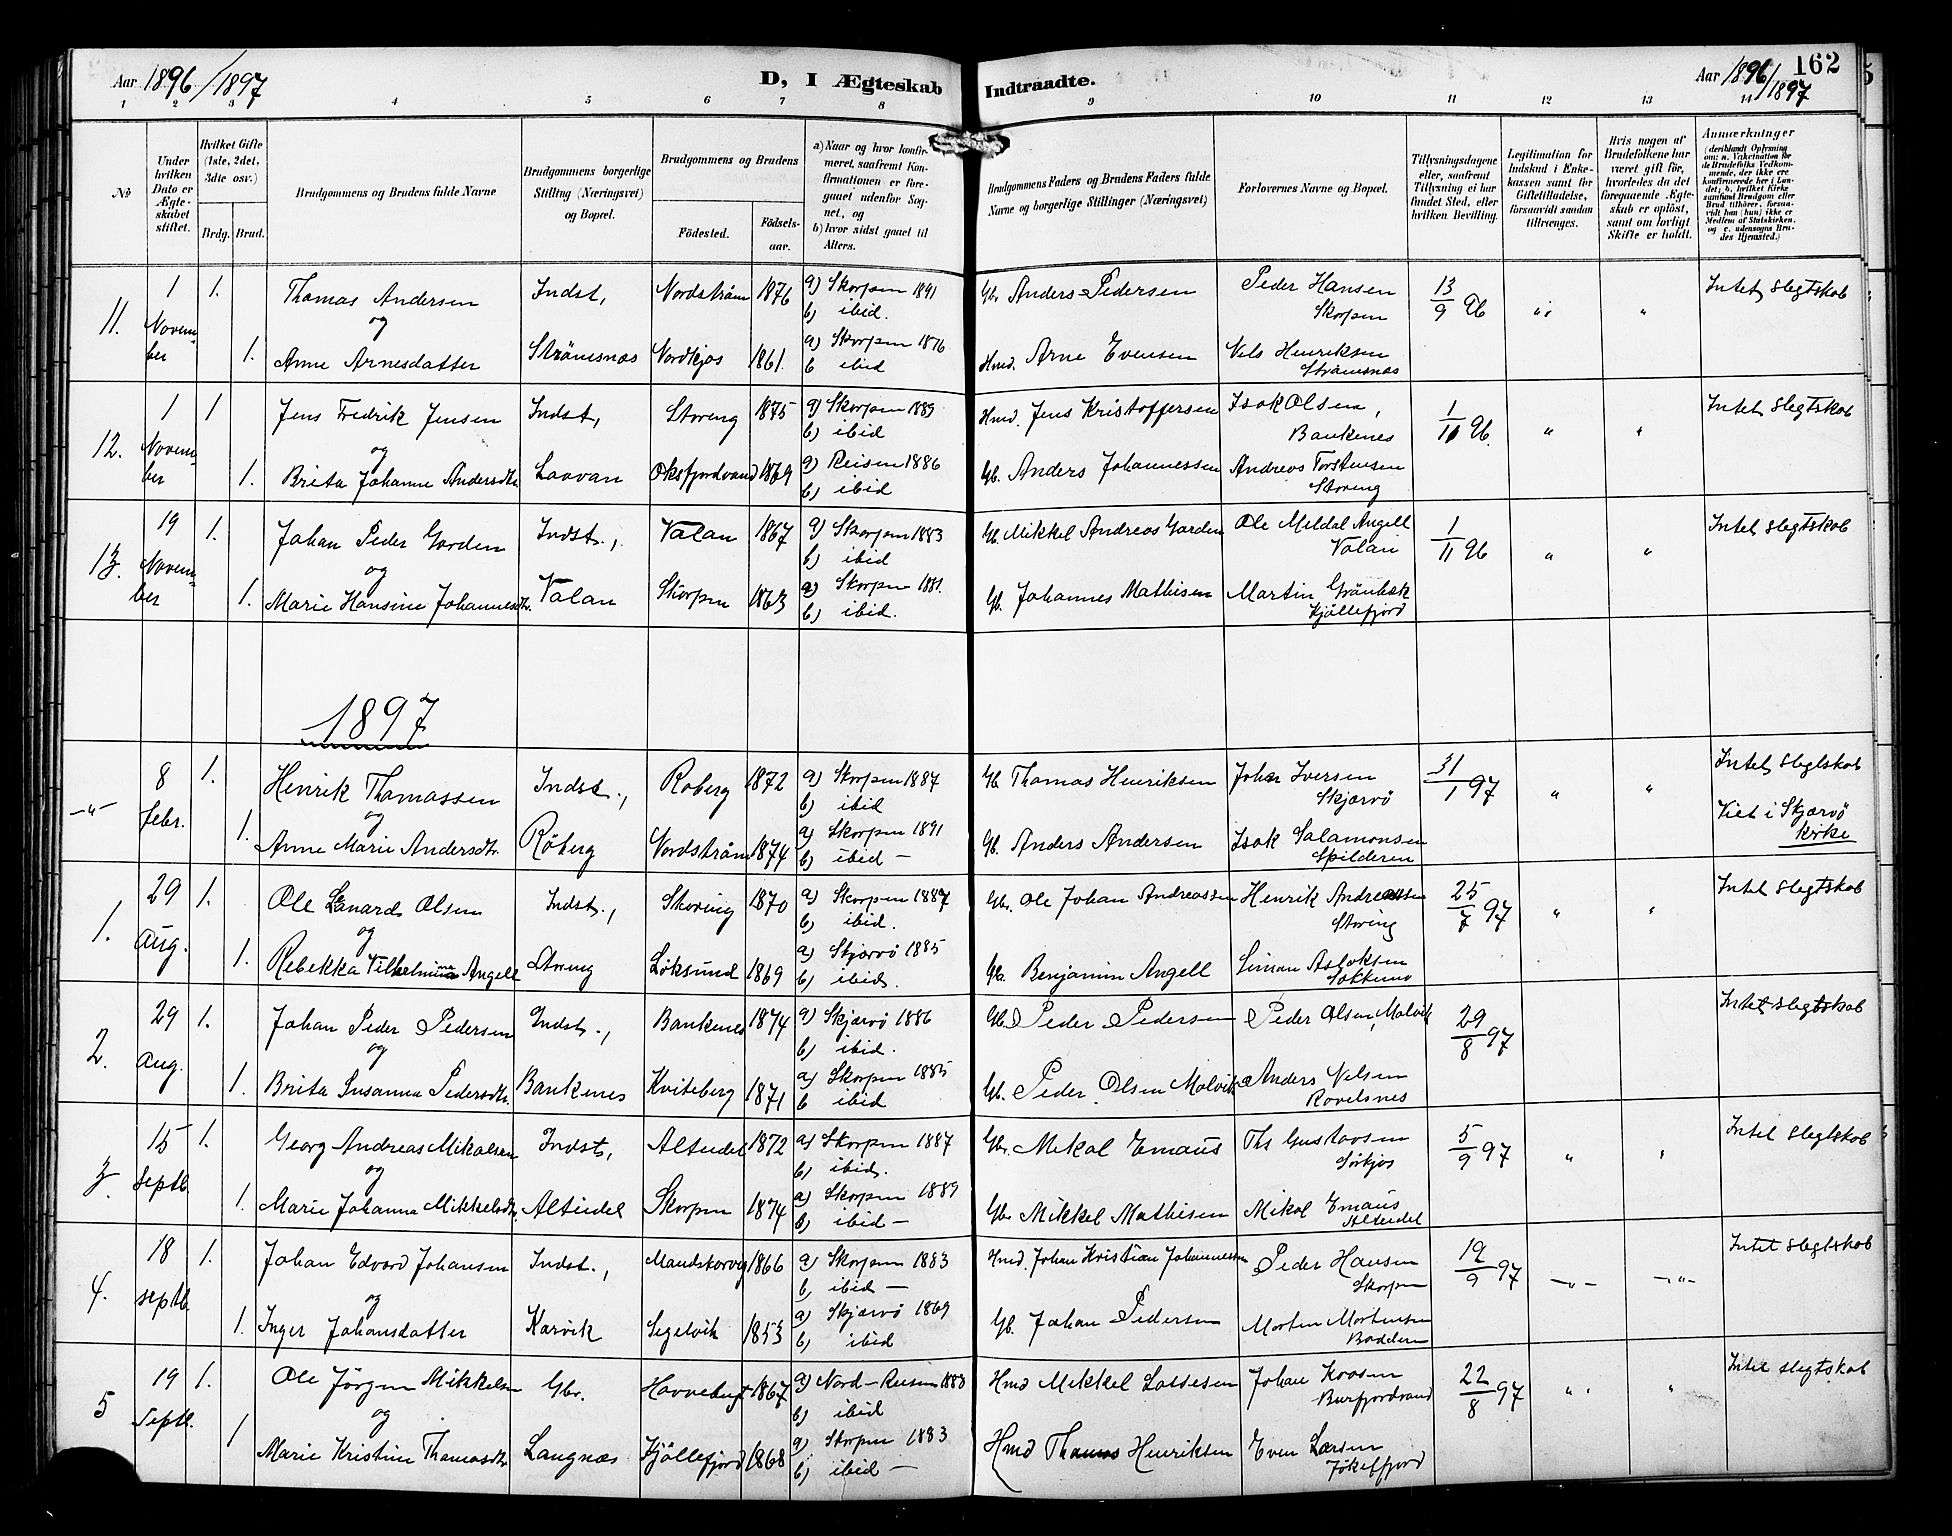 Aar 1896/1897
D, I Ægteskab Indtraadte.
Aar 1896/1897
162
1 2 3 4 5 6 7 8 9 10 11 12 13 14
№
Under hvilken Dato er Ægteskabet stiftet.
Hvilket Gifte (1ste, 2det, 3die osv.)
Brdg. Brud.
Brudgommens og Brudens fulde Navne
Brudgommens borgerlige Stilling (Næringsvei) og Bopæl.
Brudgommens og Brudens
Fødested. Fødselsaar.
a) Naar og hvor konfirmeret, saafremt Konfirmationen er foregaaet udenfor Sognet, og
b) hvor sidst gaaet til Alters.
Brudgommens Faders og Brudens Faders fulde Navne og borgerlige Stillinger (Næringsvei)
Forlovernes Navne og Bopæl.
Tillysningsdagene eller, saafremt Tillysning ei har fundet Sted, efter hvilken Bevilling.
Legitimation for Indskud i Enkekassen samt for Giftetilladelse, forsaavidt saadan tiltrænges.
Hvis nogen af Brudefolkene har været gift før, hvorledes da det foregaaende Ægteskab er opløst, samt om lovligt Skifte er holdt.
Anmærkninger (deriblandt Oplysning om: a. Vakcination for de Brudefolks Vedkommende, der ikke ere konfirmerede her i Landet; b. hvilket Kirkesamfund Brudgom eller Brud tilhører, forsaavidt han (hun) ikke er Medlem af Statskirken, og c. udensogns Brudes Hjemsted.)
11. 1 November 1. Thomas Andersen Indst, Nordstråm 1876 a) Skorpen 1891 b) ibid. Gbr. Anders Pedersen Peder Hansen Skorpen 13/9 96 " " Intet slegtskab
og
1. Anne Arnesdatter Strömsnæs Nordkjos 1861. a) Skorpen 1876 b ibid Hmd. Arne Evensen Nils Henriksen Strømsnæs
12. 1 November 1 Jens Fredrik Jensen Indst, Storeng 1875 a) Skorpen 1889 b) ibid Hmd. Jens Kristoffersen Isak Olsen, Bankenes 1/11 96. " " Intet slegtskab
og
1. Brita Johanne Andersdtr. Laavan Oksfjordvand 1869 a) Reisen 1886 b) ibid Gb. Anders Johannessen Andreas Torstensen Storeng
13. 19 November 1. Johan Peder Garden Indst., Valan 1867 a) Skorpen 1883 b) ibid Gb. Mikkel Andreas Garden Ole Meldal Angell Valan 1/11 96 " " Intet slegtskab
og
1. Marie Hansine Johannesdtr. Valan Skorpen 1863 a) Skorpen 1881. b) ibid. Gb. Johannes Mathisen Martin Grönbæk Kjöllefjord
1897
-"- 8 febr. 1. Henrik Thomassen Indst., Roberg 1872 a) Skorpen 1887 b) ibid Gb Thomas Henriksen Johan Iversen Skjærvö 31/1 97 " " Intet slegtskab
og
1. Anne Marie Andersdtr. Röberg Nordstråm 1874 a) Skorpen 1891 b) ibid — Gb. Anders Andersen Isak Salamonsen Spilderen Viet i Skjærvö kirke
1. 29 Aug. 1. Ole Lenard Olsen Indst., Storeng 1870 a) Skorpen 1887 b) ibid. Gbr. Ole Johan Andreassen Henrik Andreassen Storeng 25/7 97 " " Intet slegtskab
og
1. Rebekka Vilhelmine Angell Storeng Löksund 1869 a) Skjærvö 1885 b) ibid. Gb. Benjamin Angell Simon Aslaksen
2. 29 Aug. 1. Johan Peder Pedersen Indst., Bankenes 1874 a) Skjærvö 1886 b) ibid. Gb. Peder Pedersen Peder Olsen, Malvik 29/8 97 Intet slegtskab
og
1. Brita Susanna Pedersdtr. Bankenes Kviteberg 1871 a) Skorpen 1885 b ibid Gb. Peder Olsen Malvik Anders Nilsen Ravelsnes
3. 15 Septb. 1. Georg Andreas Mikalsen Indst, Alteidet 1872 a) Skorpen 1887 b) ibid. Gb. Mikal Emaus Ths Gustavsen Sörkjos 5/9 97 " " Intet slegtskab
og
1. Marie Johanna Mikkelsdtr. Alteidet Skorpen 1874 a) Skorpen 1889 b) ibid — Gb. Mikkel Mathisen Mikal Emaus Alteidet
4. 18 septb. 1. Johan Edvard Johansen Indst., Mandskarvig 1866 a) Skorpen 1883 b) ibid — Hmd. Johan Kristian Johannessen Peder Hansen Skorpen 12/9 97 -"- -"- Intet slegtskab
og
1. Inger Johansdatter Karvik Segelvik 1853 a) Skjærvö 1869 b) ibid Gb. Johan Pedersen Morten Mortensen Badderen
5 19 Septb. 1. Ole Jörgen Mikkelsen Gbr. Havnebugt 1867 a) Nord-Reisen 1883 b) ibid Hmd Mikkel Larsesen Johan Kroosen Burfjordvand 22/8 97 " " Intet slegtskab
og
1 Marie Kristine Thomasdtr Langnæs Kjöllefjord 1868 a) Skorpen 1883 b) ibid — Hmd Thomas Henriksen Even Larsen Jökelfjord